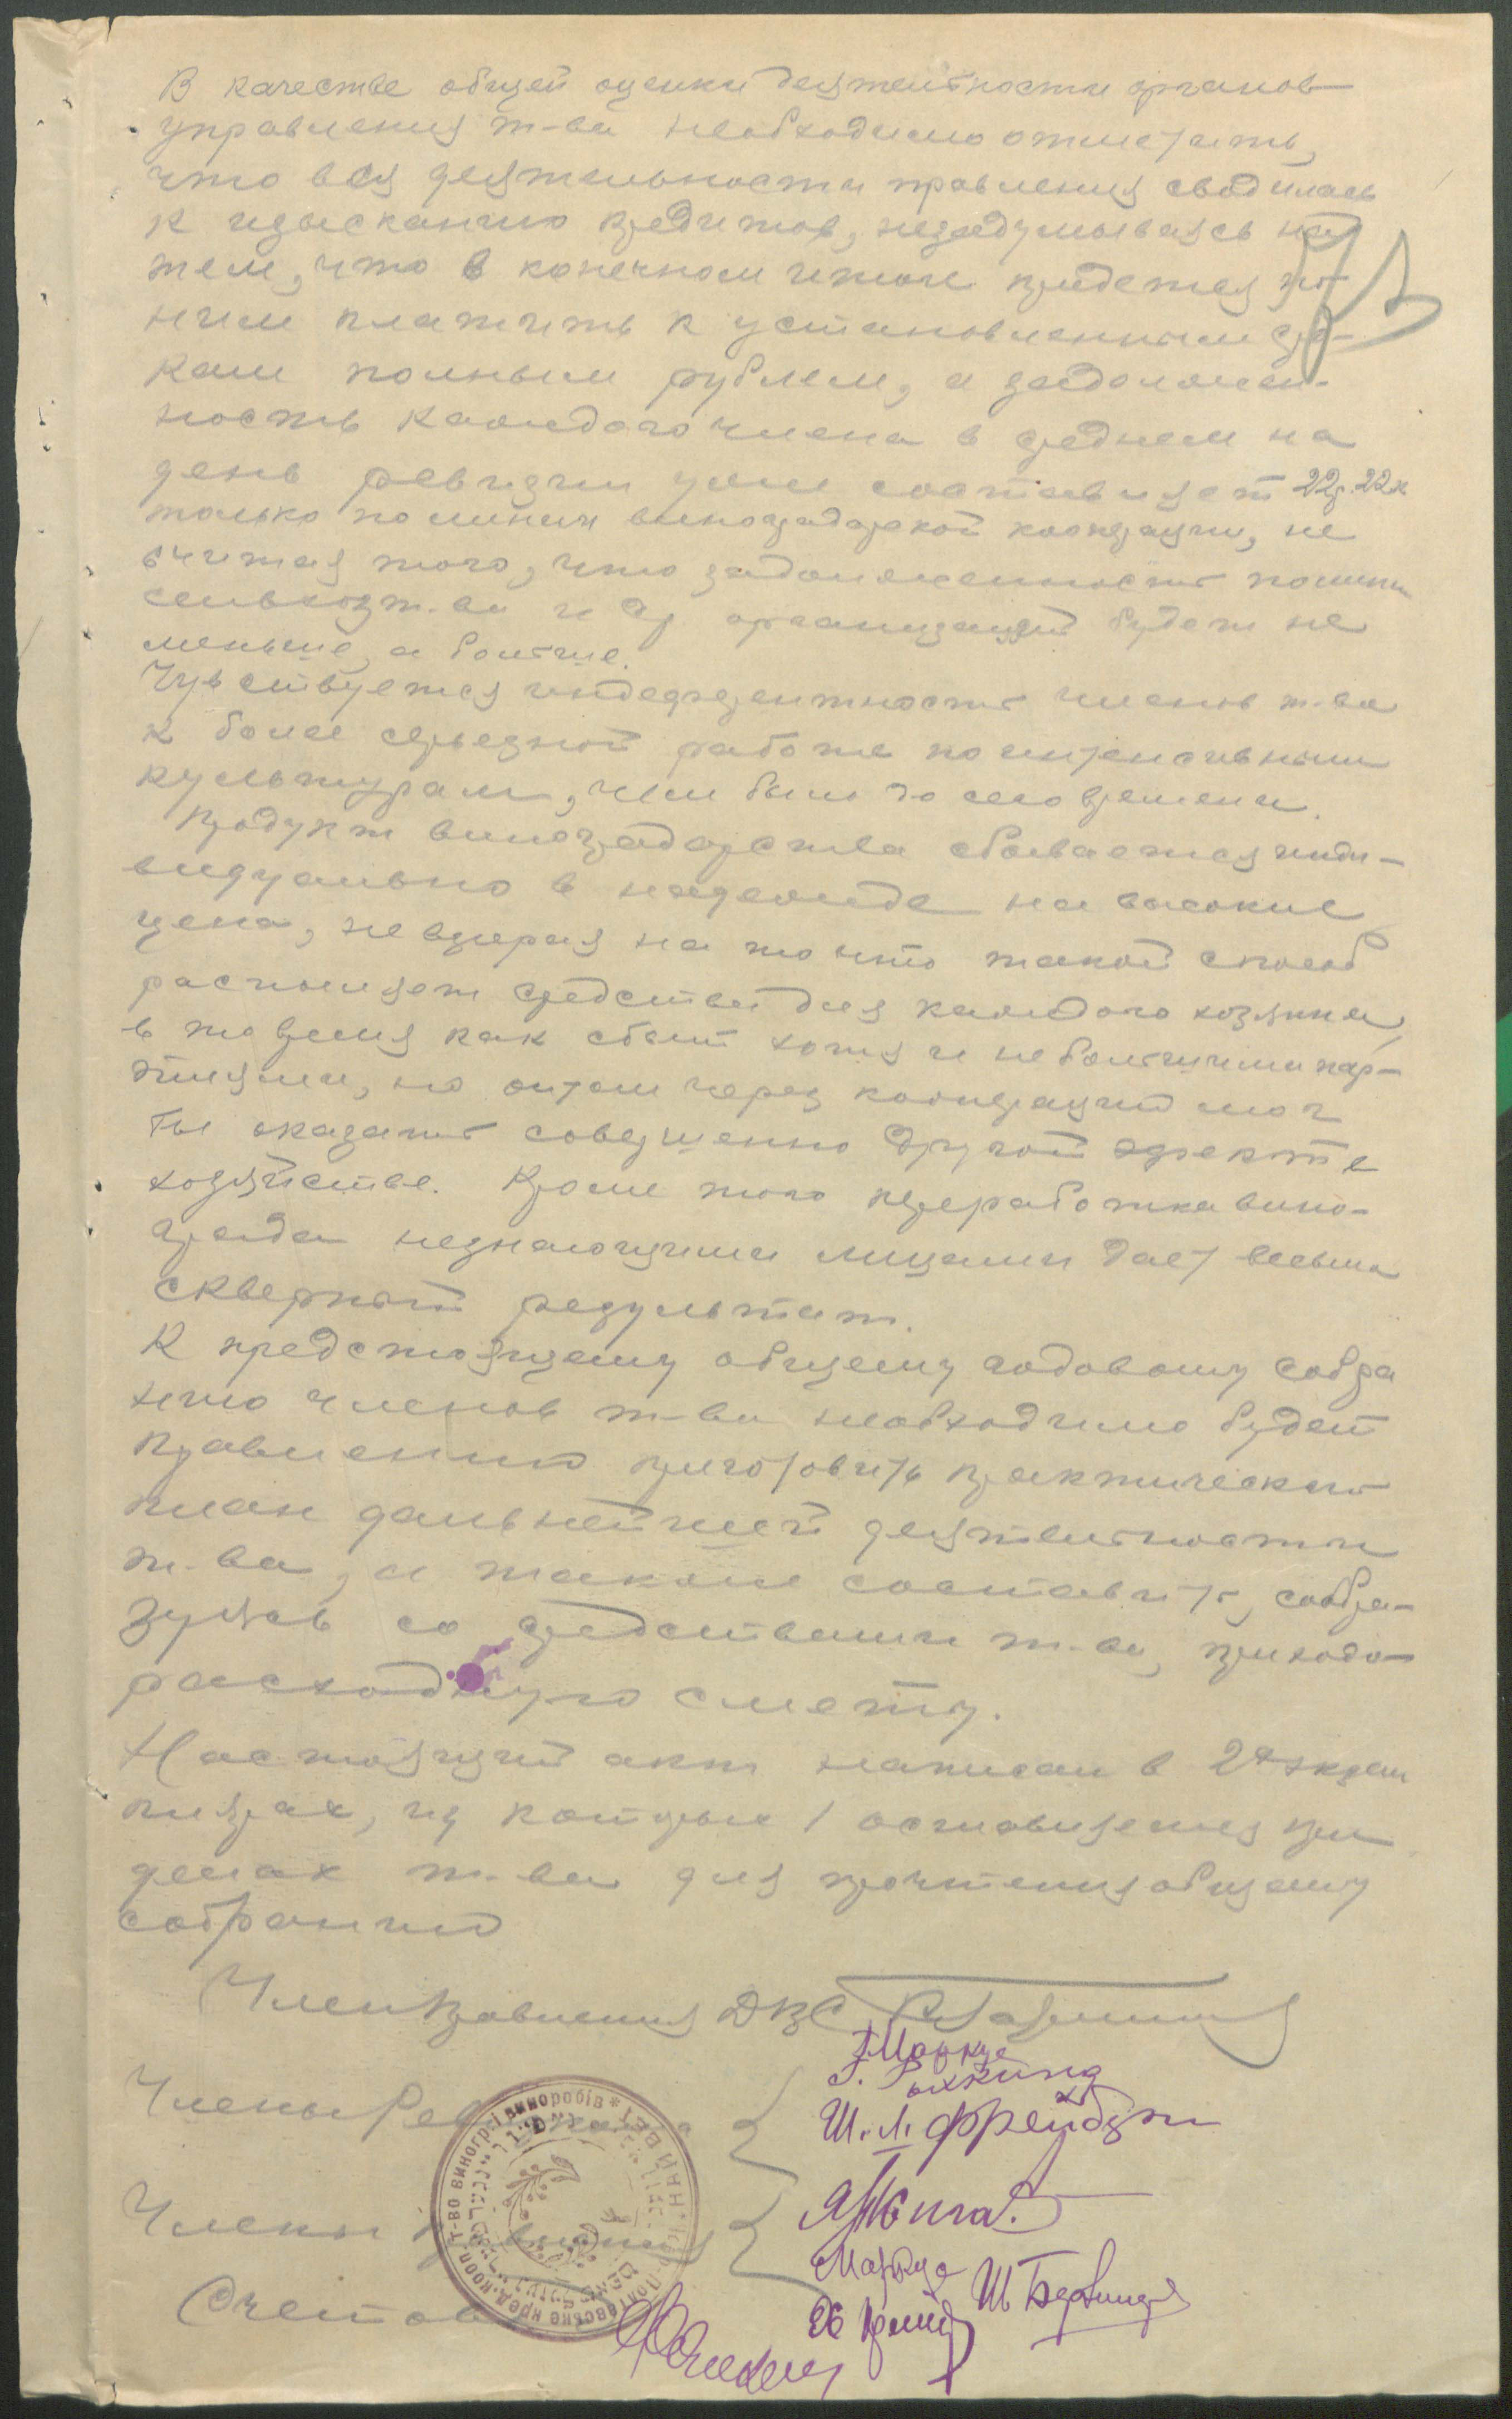 В качестве общей оценки деятельности органов
управления т-ва необходимо отметить,
что вся деятельность правления сводилась
к изысканию кредитов, незадумываясь над
тем, что в конечном итоге придется по
ним платить к установленным сро-
кам полным рублем, а задолжен-
ность каждого члена в среднем на
день ревизии уже составляет 22р. 22к
только по линии виноградарской кооперации, не
считая того, что задолженность по линии
сельхозт-ва и др организаций будет не
меньше, а больше.
Чувствуется индеферентность членов т-ва
к более серьезной работе по интенсивным
культурам, чем было до сего времени.
Продукт виноградарства сбывается инди-
видуально в надежде на высокие
цены, невзирая на то что такой способ
распыляет средства для каждого хозяина,
в то время как сбыт хотя и небольшими пар-
тиями, но оптом через кооперацию мог
бы оказать совершенно другой эффект в
хозяйстве. Кроме того переработка вино-
града незнающими лицами дает весьма
скверный результат.
К предстоящему общему годовому собра
нию членов т-ва необходимо будет
правлению приготовить практический
план дальнейшей деятельности
т-ва, а также составить, сообра-
зуясь со средствами т-ва, приходо-
расходную смету.
Настоящий акт написан в 2х экзем
плярах, из которых 1 оставляется при
делах т-ва для прочтения общему
собранию
Член Правления
Члены
Ш. Л. Фрейдзон
Члены
Счетов
т-во виногр. і виноробів * кред. кооп.